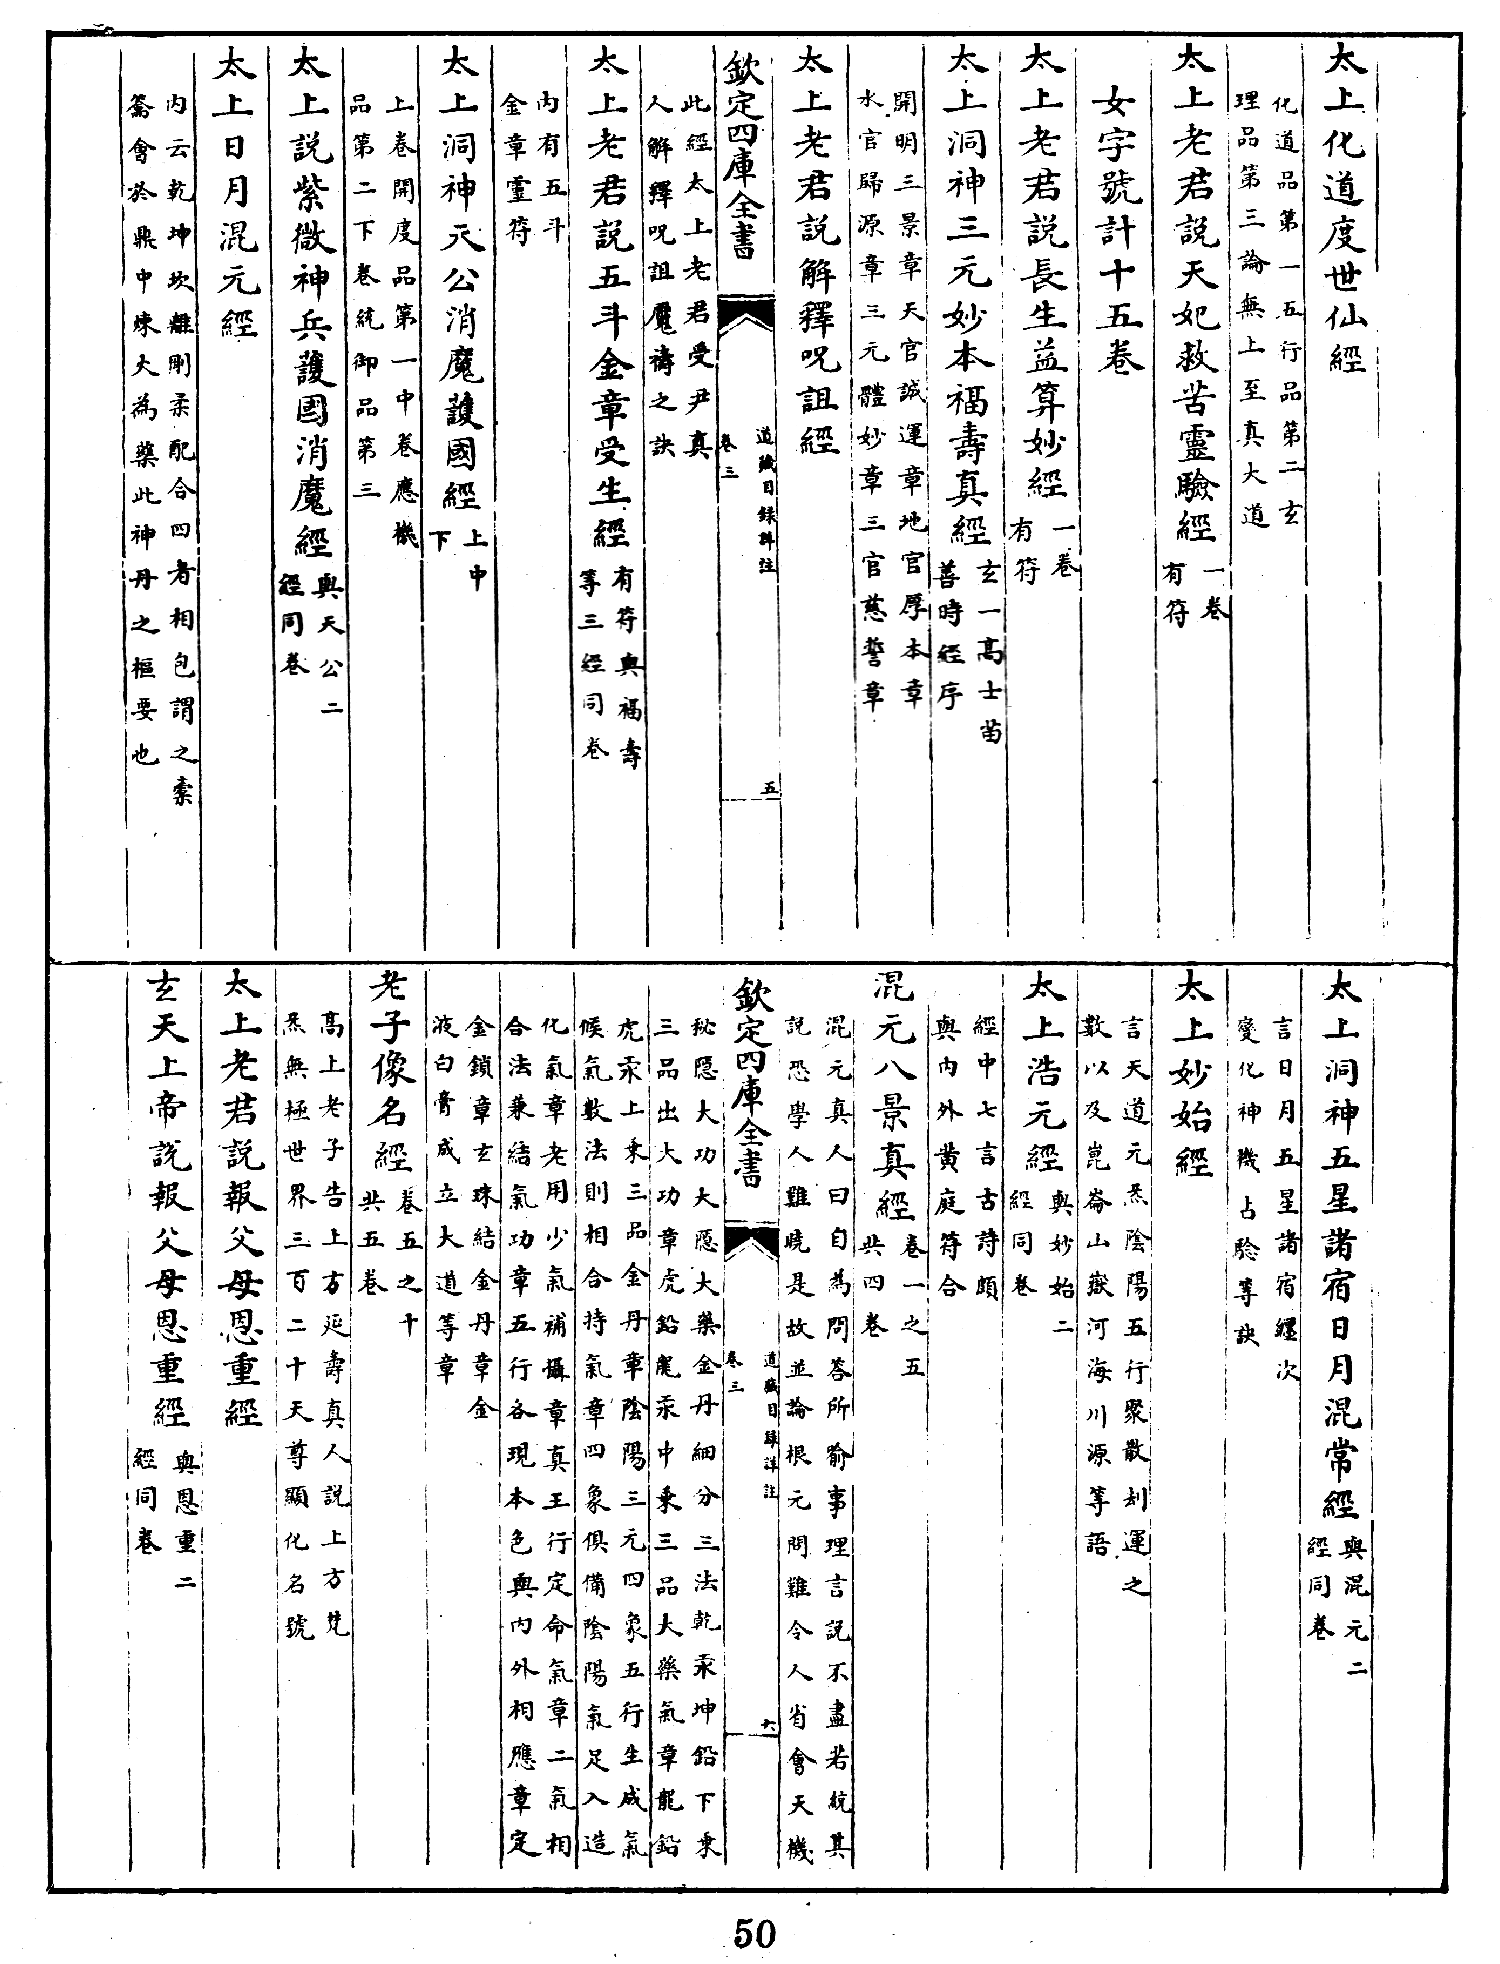 太上化道度世仙經
化道品第一五行品第二玄
理品第三論無上至真大道
太上老君説天妃救苦靈驗經 一卷
有符
女字號計十五卷
太上老君説長生益算妙經 一卷
有符
太上洞神三元妙本福壽真經 玄一高士苗
善時經序
開明三景章天官誠運章地官厚本章
水官歸源章三元體妙章三官慈誓章
太上老君説解釋咒詛經
欽定四庫全書
道藏目録詳註
卷三
五
此經太上老君受尹真
人解釋咒詛魘禱之訣
太上老君説五斗金章受生經 有符與福壽
等三經同卷
内有五斗
金章靈符
太上洞神天公消魔護國經 上中
下
上卷開度品第一中卷應機
品第二下卷統御品第三
太上説紫微神兵護國消魔經 與天公二
經同卷
太上日月混元經
内云乾坤坎離剛柔配合四者相包謂之橐
籥會於鼎中煉大為藥此神丹之樞要也
太上洞神五星諸宿日月混常經 與混元二
經同卷
言日月五星諸宿纒次
變化神機占驗等訣
太上妙始經
言天道元炁陰陽五行聚散刦運之
數以及崑崙山嶽河海川源等語
太上浩元經 與妙始二
經同卷
經中七言古詩頗
與内外黄庭符合
混元八景真經 卷一之五
共四卷
混元真人曰自為問答所喻事理言説不盡若統其
説恐學人難曉是故並論根元問難令人省會天機
欽定四庫全書
道藏目録詳註
卷三
六
秘隱大功大隱大藥金丹細分三法乾汞坤鉛下乗
三品出大功章虎鉛鬼汞中乗三品大藥氣章龍鉛
虎汞上乗三品金丹章陰陽三元四象五行生成氣
候氣數法則相合持氣章四象俱備陰陽氣足入造
化氣章老用少氣補攝章真王行定命氣章二氣相
合法兼結氣功章五行各現本色與内外相應章定
金鎖章玄珠結金丹章金
液白膏成立大道等章
老子像名經 卷五之十
共五卷
高上老子告上方延壽真人説上方梵
炁無極世界三百二十天尊顯化名號
太上老君説報父母恩重經
玄天上帝説報父母恩重經 與恩重二
經同卷
50